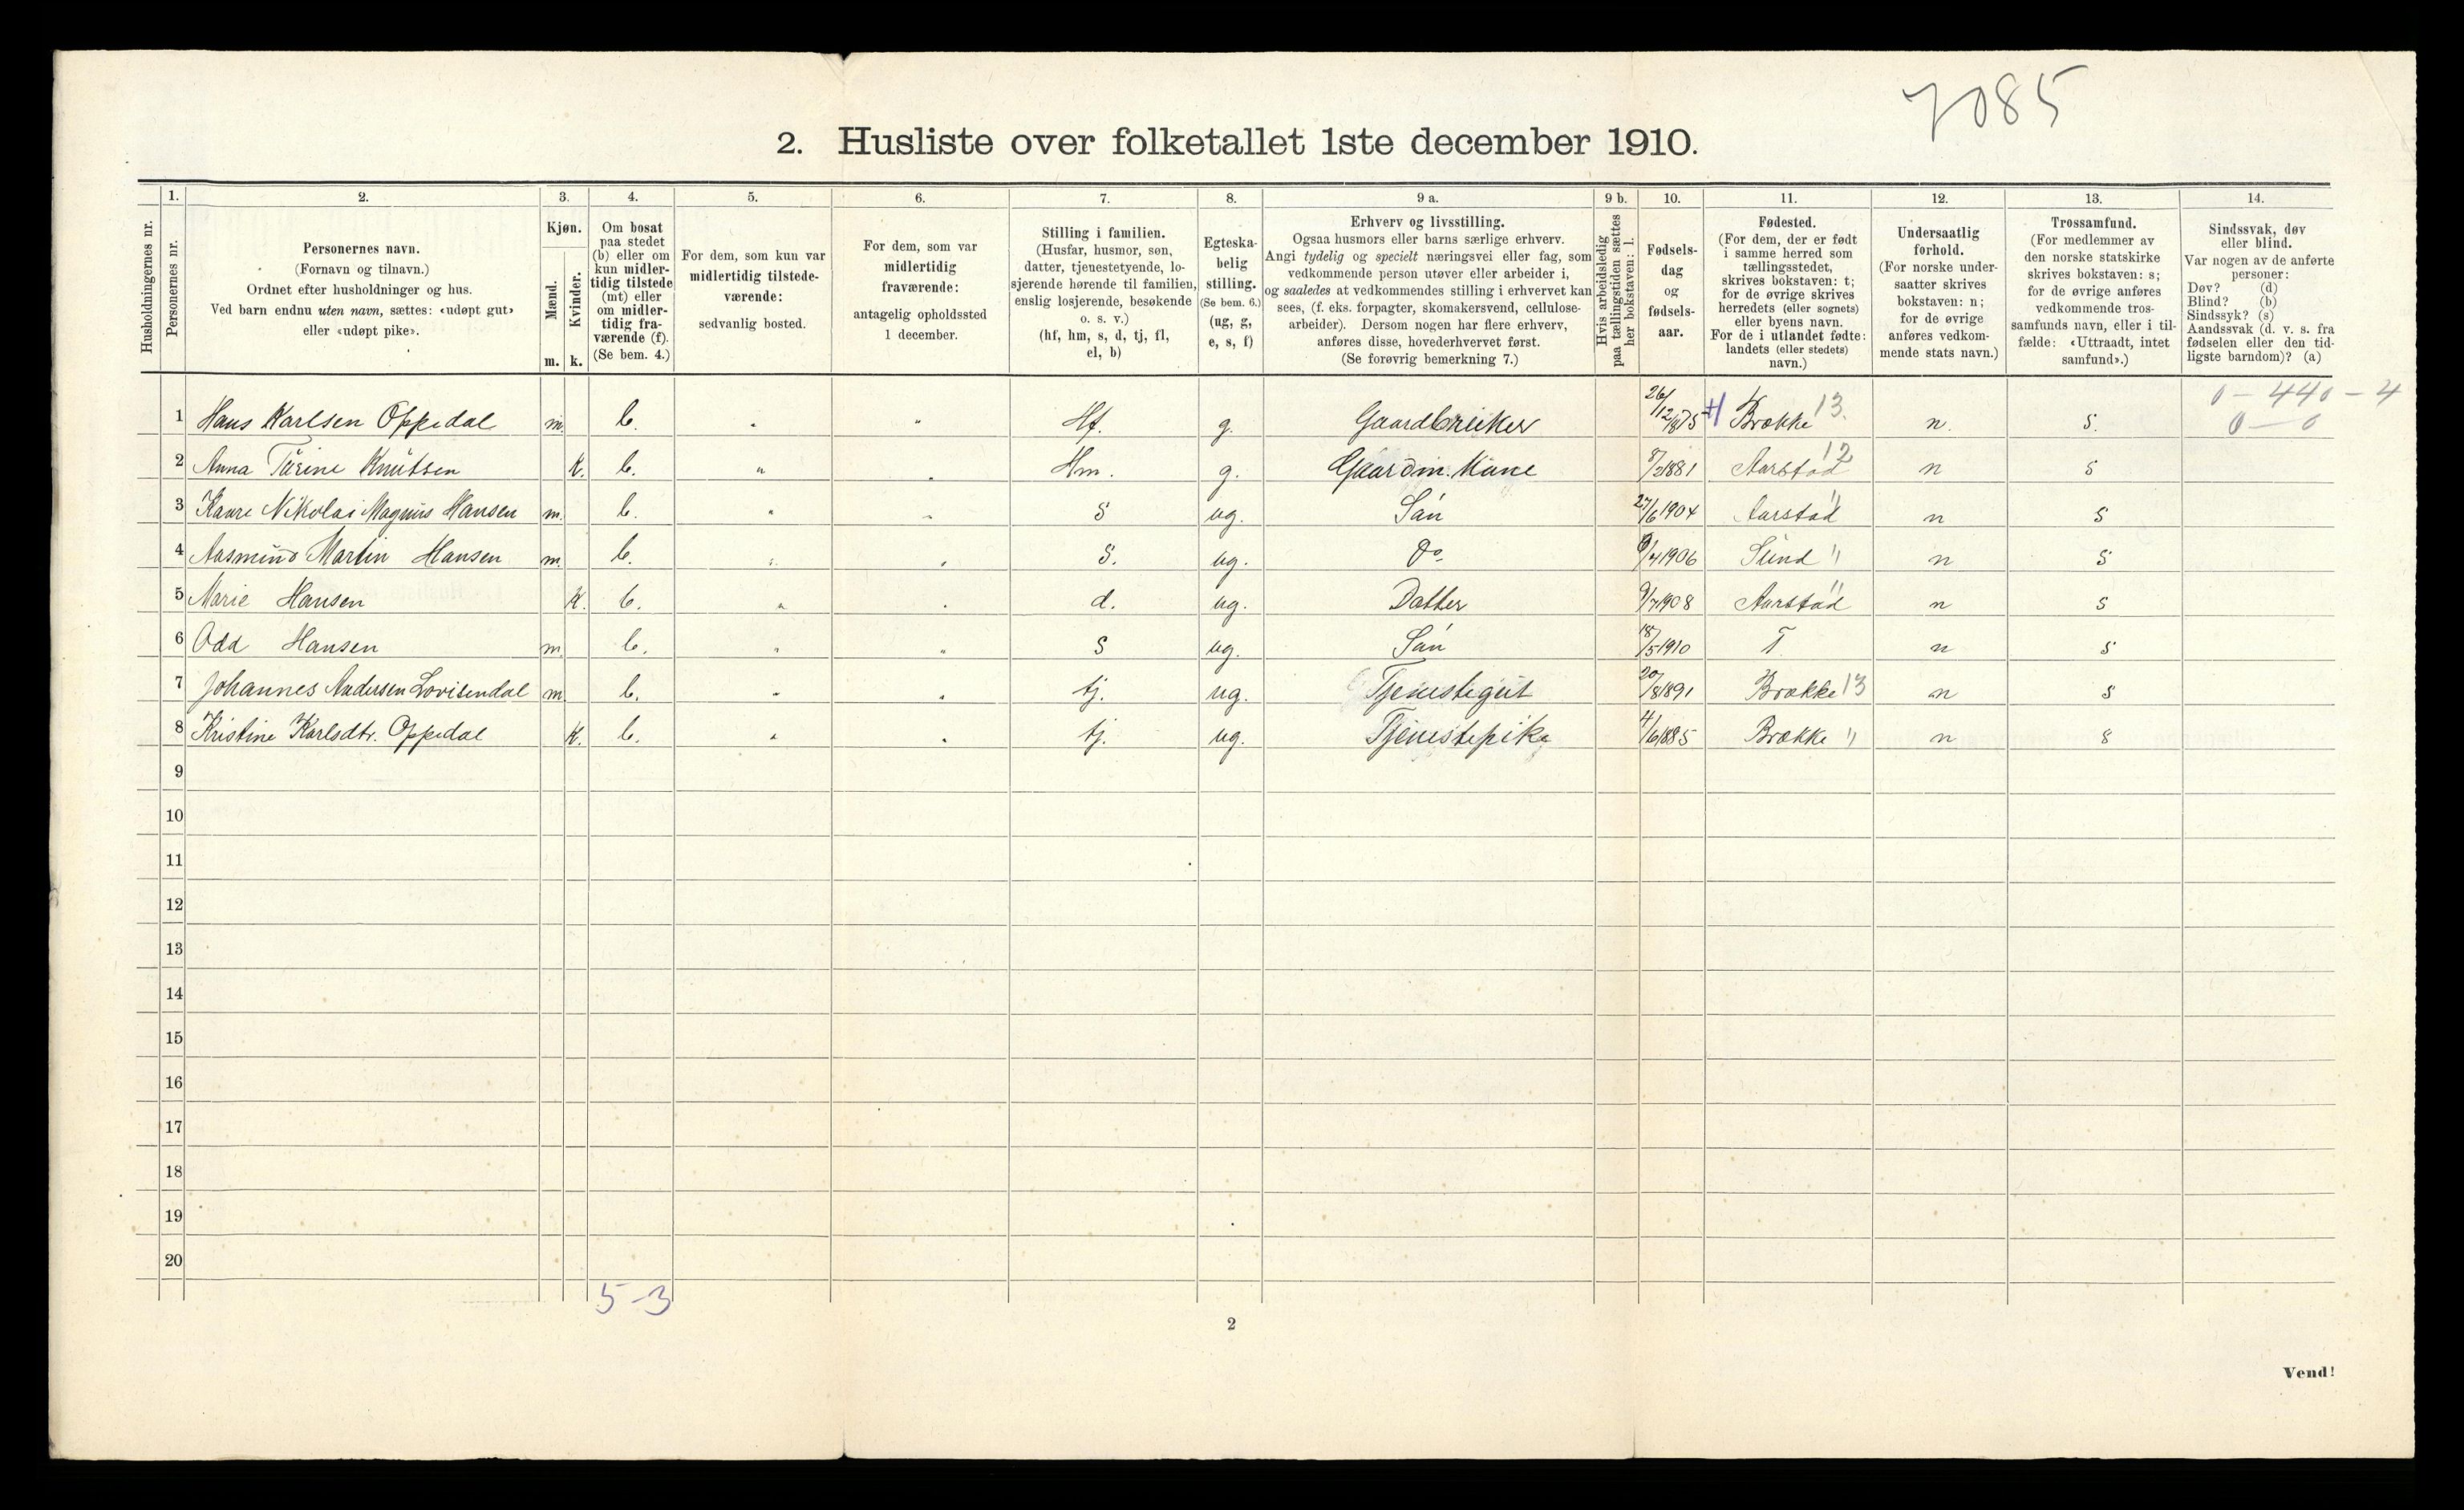 7085
2. Husliste over folketallet 1ste december 1910.
Husholdningernes nr.
1.
Personernes nr.
2.
Personernes navn.
(Fornavn og tilnavn.)
Ordnet efter husholdninger og hus.
Ved barn endnu uten navn, sættes: «udøpt gut»
eller «udøpt pike».
3.
Kjøn.
Mænd.
Kvinder.
m. k.
4.
Om bosat
paa stedet
(b) eller om
kun midler-
tidig tilstede
(mt) eller
om midler-
tidig fra-
værende (f).
(Se bem. 4.)
5.
For dem, som kun var
midlertidig tilstede-
værende:
sedvanlig bosted.
6.
For dem, som var
midlertidig
fraværende:
antagelig opholdssted
1 december.
7.
Stilling i familien.
(Husfar, husmor, søn,
datter, tjenestetyende, lo-
sjerende hørende til familien,
enslig losjerende, besøkende
o. s. v.)
(hf, hm, s, d, tj, fl,
el, b)
8.
Egteska-
belig
stilling.
(Se bem. 6.)
(ug, g,
e, s, f)
9 a.
Erhverv og livsstilling.
Ogsaa husmors eller barns særlige erhverv.
Angi tydelig og specielt næringsvei eller fag, som
vedkommende person utøver eller arbeider i,
og saaledes at vedkommendes stilling i erhvervet kan
sees, (f. eks. forpagter, skomakersvend, cellulose-
arbeider). Dersom nogen har flere erhverv,
anføres disse, hovederhvervet først.
(Se forøvrig bemerkning 7.)
9 b.
Hvis arbeidsledig
paa tællingstiden sættes
her bokstaven: l.
10.
Fødsels-
dag
og
fødsels-
aar.
11.
Fødested.
(For dem, der er født
i samme herred som
tællingsstedet,
skrives bokstaven: t;
for de øvrige skrives
herredets (eller sognets)
eller byens navn.
For de i utlandet fødte:
landets (eller stedets)
navn.)
12.
Undersaatlig
forhold.
(For norske under-
saatter skrives
bokstaven: n;
for de øvrige
anføres vedkom-
mende stats navn.)
13.
Trossamfund.
(For medlemmer av
den norske statskirke
skrives bokstaven: s;
for de øvrige anføres
vedkommende tros-
samfunds navn, eller i til-
fælde: «Uttraadt, intet
samfund».)
14.
Sindssvak, døv
eller blind.
Var nogen av de anførte
personer:
Døv? (d)
Blind? (b)
Sindssyk? (s)
Aandssvak (d. v. s. fra
fødselen eller den tid-
ligste barndom)? (a)
0 - 440 - 4
0 — 0
1 Hans Karlsen Oppedal m. b. " " Hf. g. Gaardbruker 26/12/1875 Brække 13. n. s.
2 Anna Turine Knutsen K. b. " " Hm. g. Gaardm. Kone 8/2 1881 Aarstad 12 n s
3 Kaare Nikolai Magnus Hansen m. b. " " S ug. Sön 27/6 1904 Aarstad " n s
4 Aasmund Martin Hansen m. b. " " S. ug. Do 9/4 1906 Sund " n s
5 Marie Hansen K. b. " " d. ug. Datter 9/7 1908 Aarstad " n s
6 Odd Hansen m. b. " " S ug. Sön 18/5 1910 T. n s
7 Johannes Andersen Lovisendal m b. " " tj. ug. Tjenestegut 20/8 1891 Brække 13 n s
8 Kristine Karlsdtr. Oppedal K. b. " " tj. ug. Tjenestepike 4/6 1885 Brække " n s
9
10
11
12
13
14
15
16
17
18
19
20
5-3
2
Vend!